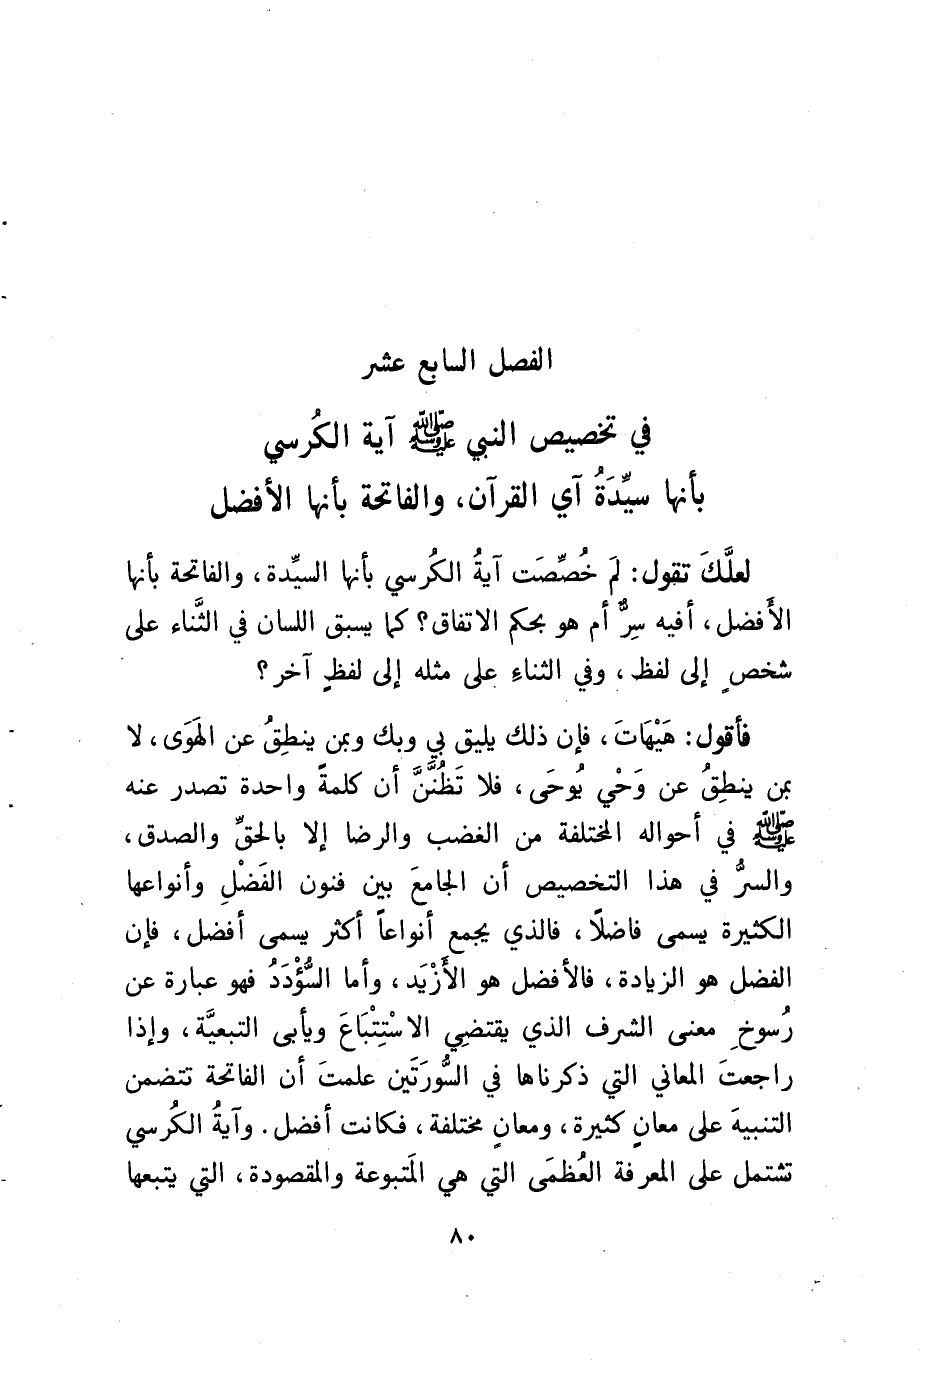 الفصل السابع عشر
في تخصيص النبي ﷺ آية الكُرسي
بأنها سيِّدَةُ آي القرآن، والفاتحة بأنها الأفضل
لعلَّكَ تقول: لِمَ خُصِّصَت آيةُ الكُرسي بأنها السيِّدة، والفاتحة بأنها
الأَفضل، أفيه سِرٌّ أم هو بحكم الاتفاق؟ كما يسبق اللسان في الثَّناء على
شخصٍ إلى لفظ، وفي الثناءِ على مثله إلى لفظٍ آخر؟
فأقول: هَيْهَاتَ، فإن ذلك يليق بي وبك وبمن ينطِقُ عن الهَوَى، لا
بمن ينطِقُ عن وَحْيٍ يُوحَى، فلا تَظُنَّنَّ أن كلمةً واحدة تصدر عنه
ﷺ في أحواله المختلفة من الغضب والرضا إلا بالحقِّ والصدق،
والسرُّ في هذا التخصيص أن الجامعَ بين فنون الفَضْلِ وأنواعها
الكثيرة يسمى فاضلًا، فالذي يجمع أنواعاً أكثر يسمى أفضل، فإن
الفضل هو الزيادة، فالأفضل هو الأَزْيَد، وأما السُّؤْدَدُ فهو عبارة عن
رُسوخِ معنى الشرف الذي يقتضِي الاسْتِتْبَاعَ ويأبى التبعيَّة، وإذا
راجعتَ المعاني التي ذكرناها في السُّورَتَين علمتَ أن الفاتحة تتضمن
التنبيهَ على معانٍ كثيرة، ومعانٍ مختلفة، فكانت أفضل. وآيةُ الكُرسي
تشتمل على المعرفة العُظمَى التي هي المَتبوعة والمقصودة، التي يتبعها
٨٠